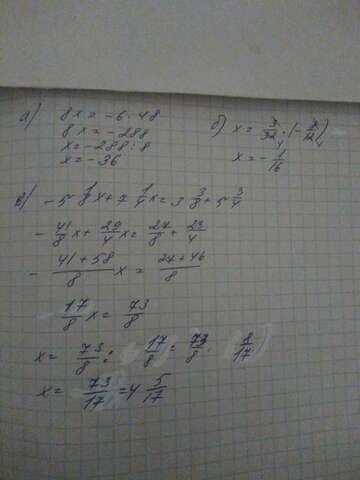 а) 8x = -6 · 48
8x = -288
x = -288 : 8
x = -36
б) x = 3/32 : (-
x = - 1/16
в) -5 1/8 x + 7 1/4 x = 3 3/8 + 5 3/4
- 41/8 x + 29/4 x = 27/8 + 23/4
- 41 + 58 / 8 x = 27 + 46 / 8
17/8 x = 73/8
x = 73/8 : 17/8 = 73/8 · 8/17
x = 73/17 = 4 5/17